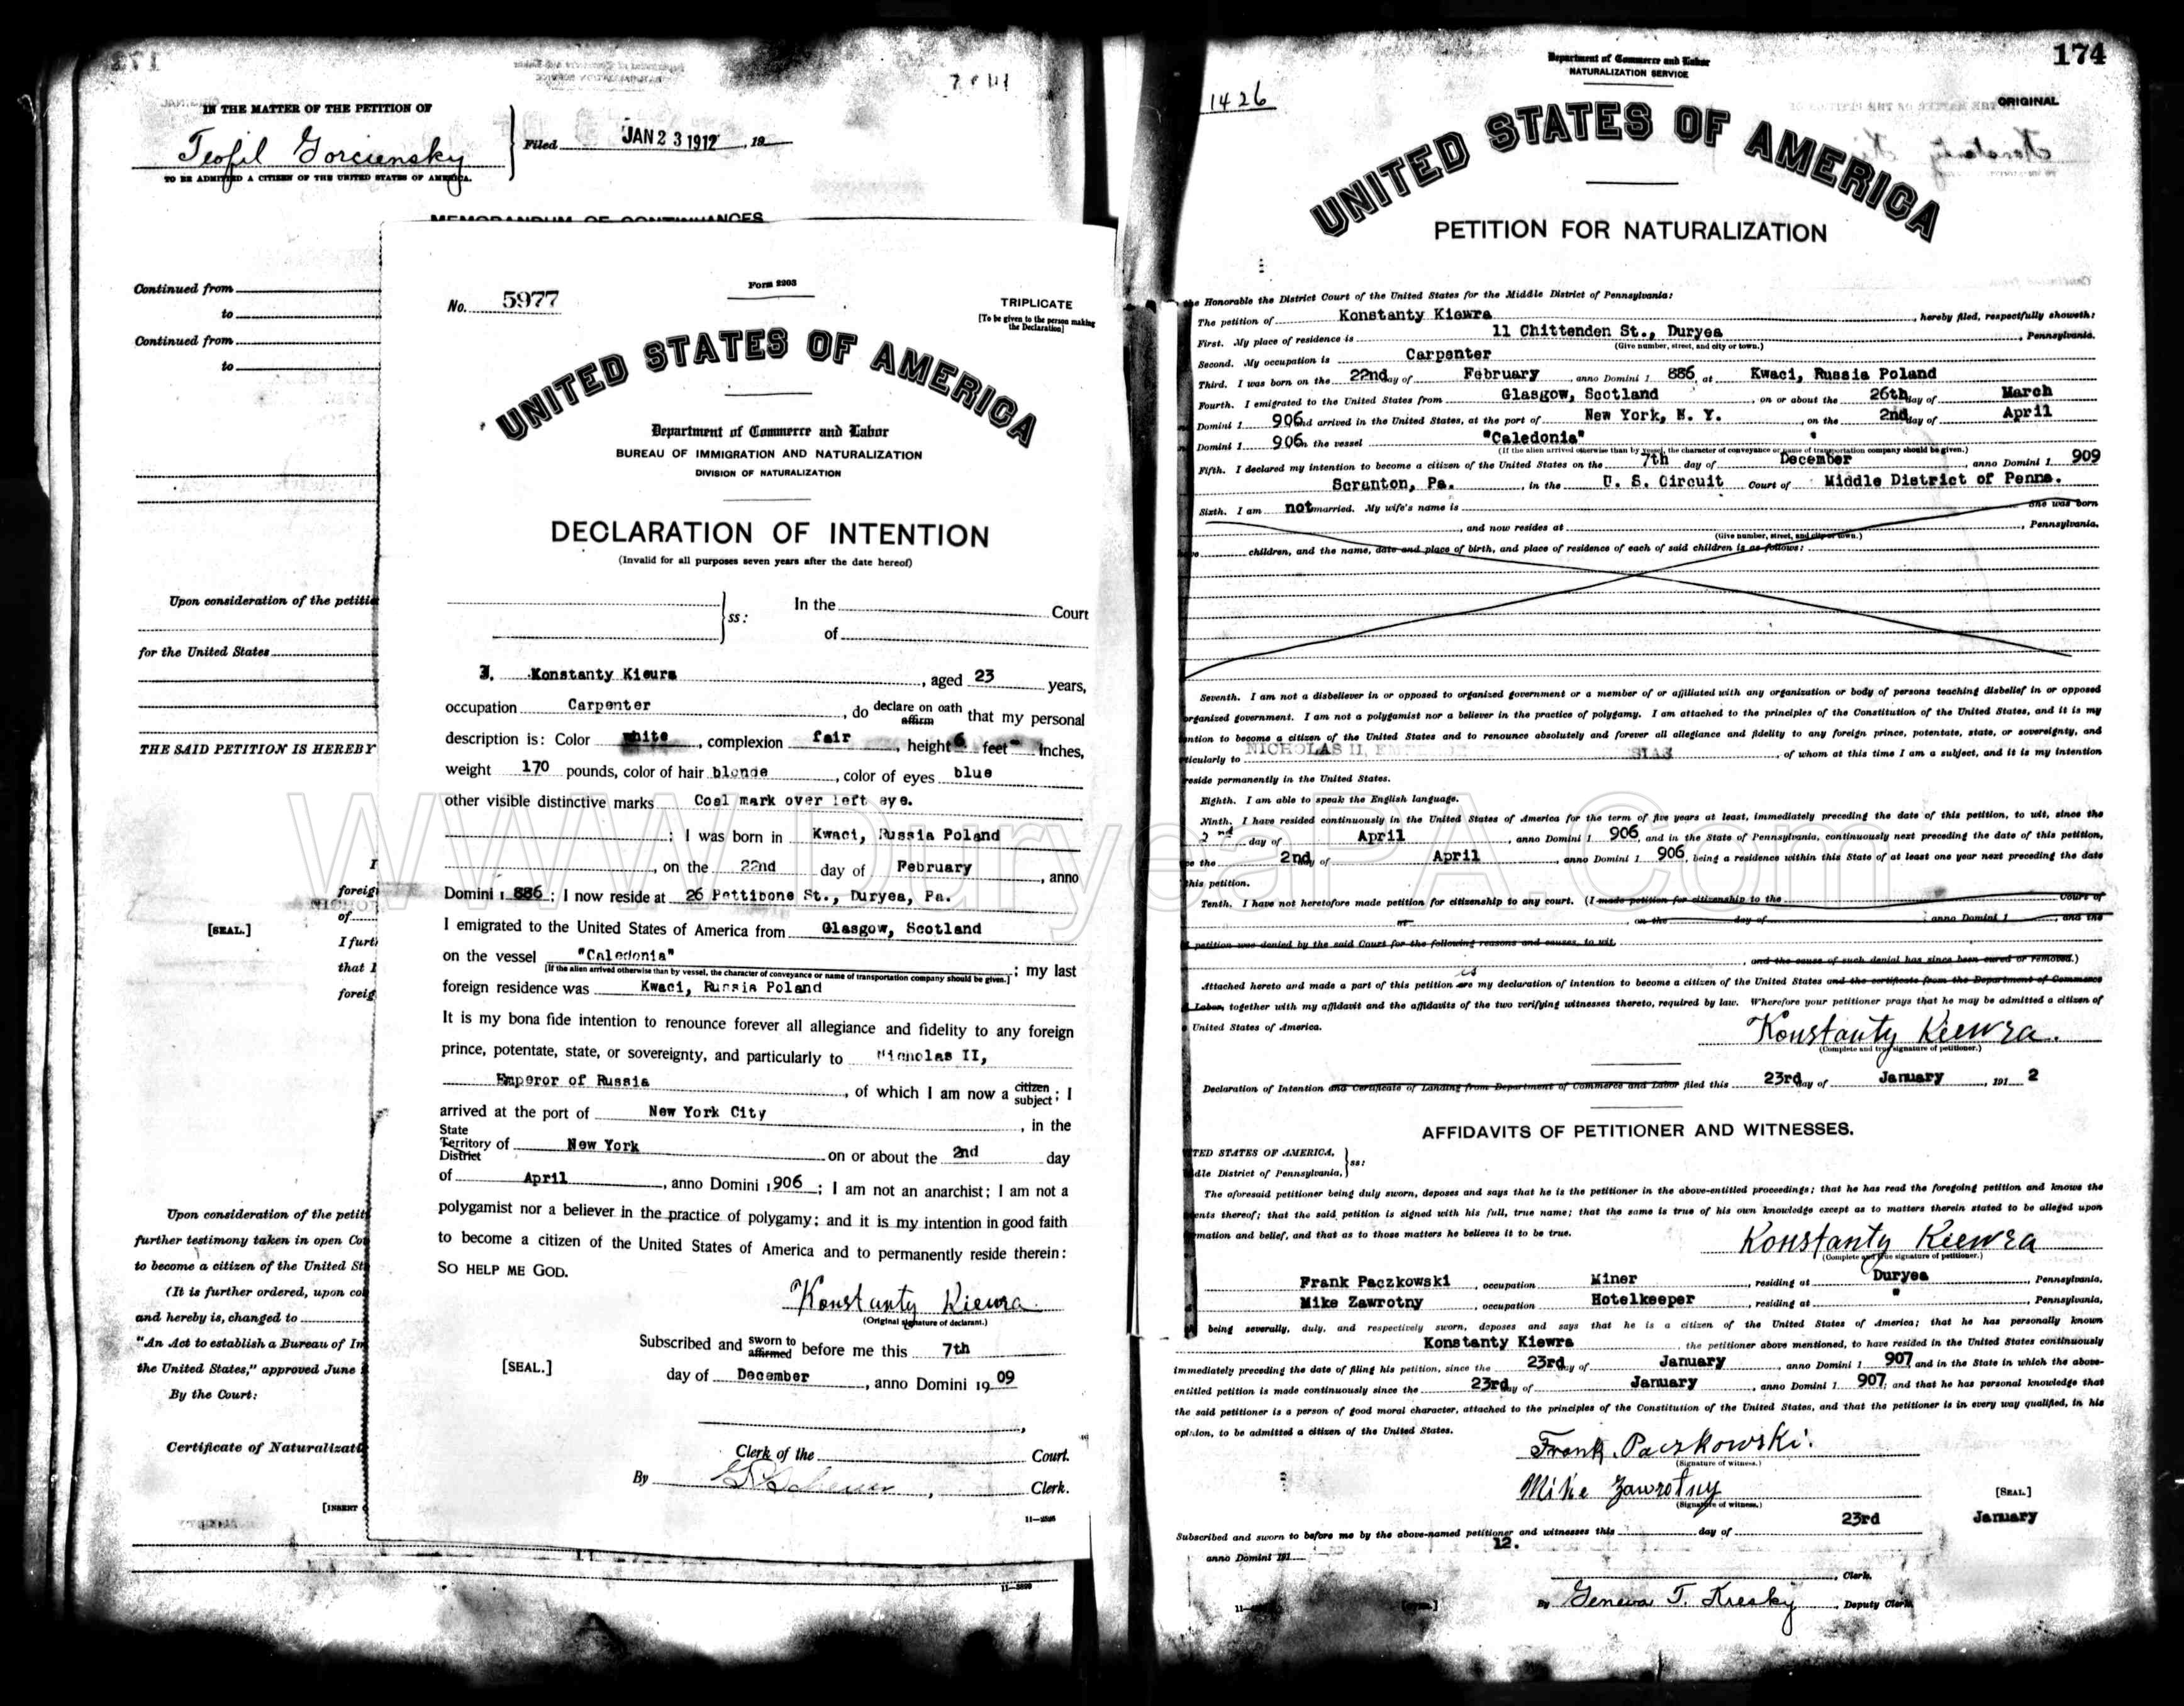 IN THE MATTER OF THE PETITION OF
Teofil Gorciensky
TO BE ADMITTED A CITIZEN OF THE UNITED STATES OF AMERICA.
Filed JAN 23 1912, 19
MEMORANDUM OF CONTINUANCES
Continued from
to
Continued from
to
Upon consideration of the petiti
for the United States
THE SAID PETITION IS HEREBY
I
foreig
of
[SEAL.]
I furt
that I
foreig
Upon consideration of the petit
further testimony taken in open Co
to become a citizen of the United St
(It is further ordered, upon co
and hereby is, changed to
"An Act to establish a Bureau of Im
the United States," approved June
By the Court:
Certificate of Naturalizati
[INSERT
No. 5977
Form 2203
TRIPLICATE
[To be given to the person making the Declaration]
UNITED STATES OF AMERICA
Department of Commerce and Labor
BUREAU OF IMMIGRATION AND NATURALIZATION
DIVISION OF NATURALIZATION
DECLARATION OF INTENTION
(Invalid for all purposes seven years after the date hereof)
ss:
In the Court
of
I, Konstanty Kieura, aged 23 years,
occupation Carpenter, do declare on oath affirm that my personal
description is: Color white, complexion fair, height 6 feet - inches,
weight 170 pounds, color of hair blonde, color of eyes blue
other visible distinctive marks Coal mark over left eye.
; I was born in Kwaci, Russia Poland
, on the 22nd day of February, anno
Domini 1 886; I now reside at 26 Pettibone St., Duryea, Pa.
I emigrated to the United States of America from Glasgow, Scotland
on the vessel "Caledonia"; my last
[If the alien arrived otherwise than by vessel, the character of conveyance or name of transportation company should be given.]
foreign residence was Kwaci, Russia Poland
It is my bona fide intention to renounce forever all allegiance and fidelity to any foreign
prince, potentate, state, or sovereignty, and particularly to Nicholas II,
Emperor of Russia, of which I am now a citizen subject; I
arrived at the port of New York City, in the
State Territory District of New York on or about the 2nd day
of April, anno Domini 1 906; I am not an anarchist; I am not a
polygamist nor a believer in the practice of polygamy; and it is my intention in good faith
to become a citizen of the United States of America and to permanently reside therein:
SO HELP ME GOD.
Konstanty Kiewra
(Original signature of declarant.)
Subscribed and sworn to affirmed before me this 7th
[SEAL.]
day of December, anno Domini 19 09
Clerk of the Court.
By , Clerk.
174
Department of Commerce and Labor
NATURALIZATION SERVICE
1426
ORIGINAL
UNITED STATES OF AMERICA
PETITION FOR NATURALIZATION
the Honorable the District Court of the United States for the Middle District of Pennsylvania:
The petition of Konstanty Kiewra, hereby filed, respectfully showeth:
First. My place of residence is 11 Chittenden St., Duryea, Pennsylvania.
(Give number, street, and city or town.)
Second. My occupation is Carpenter
Third. I was born on the 22nd day of February, anno Domini 1 886, at Kwaci, Russia Poland
Fourth. I emigrated to the United States from Glasgow, Scotland, on or about the 26th day of March
Domini 1 906 and arrived in the United States, at the port of New York, N. Y., on the 2nd day of April
Domini 1 906 on the vessel "Caledonia"
(If the alien arrived otherwise than by vessel, the character of conveyance or name of transportation company should be given.)
Fifth. I declared my intention to become a citizen of the United States on the 7th day of December, anno Domini 1 909
Scranton, Pa., in the U. S. Circuit Court of Middle District of Penna.
Sixth. I am not married. My wife's name is she was born
, and now resides at , Pennsylvania.
(Give number, street, and city or town.)
children, and the name, date and place of birth, and place of residence of each of said children is as follows:
Seventh. I am not a disbeliever in or opposed to organized government or a member of or affiliated with any organization or body of persons teaching disbelief in or opposed
organized government. I am not a polygamist nor a believer in the practice of polygamy. I am attached to the principles of the Constitution of the United States, and it is my
ntion to become a citizen of the United States and to renounce absolutely and forever all allegiance and fidelity to any foreign prince, potentate, state, or sovereignty, and
ticularly to NICHOLAS II, of whom at this time I am a subject, and it is my intention
reside permanently in the United States.
Eighth. I am able to speak the English language.
Ninth. I have resided continuously in the United States of America for the term of five years at least, immediately preceding the date of this petition, to wit, since the
2nd day of April, anno Domini 1 906, and in the State of Pennsylvania, continuously next preceding the date of this petition,
ce the 2nd day of April anno Domini 1 906, being a residence within this State of at least one year next preceding the date
this petition.
Tenth. I have not heretofore made petition for citizenship to any court. (I made petition for citizenship to the Court of
at on the day of , anno Domini 1 , and the
petition was denied by the said Court for the following reasons and causes, to wit,
, and the cause of such denial has since been cured or removed.)
is
Attached hereto and made a part of this petition are my declaration of intention to become a citizen of the United States and the certificate from the Department of Commerce
Labor, together with my affidavit and the affidavits of the two verifying witnesses thereto, required by law. Wherefore your petitioner prays that he may be admitted a citizen of
United States of America.
Konstanty Kiewra.
(Complete and true signature of petitioner.)
Declaration of Intention and Certificate of Landing from Department of Commerce and Labor filed this 23rd day of January, 191 2
AFFIDAVITS OF PETITIONER AND WITNESSES.
TED STATES OF AMERICA,
dle District of Pennsylvania, ss:
The aforesaid petitioner being duly sworn, deposes and says that he is the petitioner in the above-entitled proceedings; that he has read the foregoing petition and knows the
ents thereof; that the said petition is signed with his full, true name; that the same is true of his own knowledge except as to matters therein stated to be alleged upon
rmation and belief, and that as to those matters he believes it to be true.
Konstanty Kiewra
(Complete and true signature of petitioner.)
Frank Paczkowski, occupation Miner, residing at Duryea, Pennsylvania,
Mike Zawrotny, occupation Hotelkeeper, residing at ", Pennsylvania,
being severally, duly, and respectively sworn, deposes and says that he is a citizen of the United States of America; that he has personally known
Konstanty Kiewra the petitioner above mentioned, to have resided in the United States continuously
immediately preceding the date of filing his petition, since the 23rd day of January, anno Domini 1 907 and in the State in which the above-
entitled petition is made continuously since the 23rd day of January, anno Domini 1 907; and that he has personal knowledge that
the said petitioner is a person of good moral character, attached to the principles of the Constitution of the United States, and that the petitioner is in every way qualified, in his
opinion, to be admitted a citizen of the United States.
Frank Paczkowski.
(Signature of witness.)
Mike Zawrotny
(Signature of witness.)
[SEAL]
Subscribed and sworn to before me by the above-named petitioner and witnesses this day of 23rd January
anno Domini 191 12.
, Clerk.
By Geneva T. Kresky, Deputy Clerk.
WWW.DuryeaPA.Com